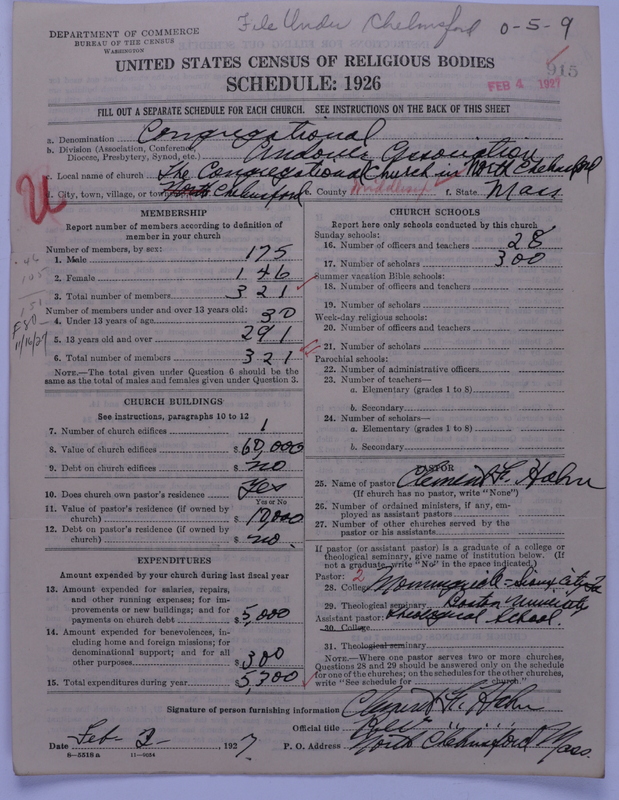 File Under Chelmsford 0-5-9
DEPARTMENT OF COMMERCE
BUREAU OF THE CENSUS
WASHINGTON
915
UNITED STATES CENSUS OF RELIGIOUS BODIES
FEB 4 1927
SCHEDULE: 1926
FILL OUT A SEPARATE SCHEDULE FOR EACH CHURCH. SEE INSTRUCTIONS ON THE BACK OF THIS SHEET
a. Denomination Congregational
b. Division (Association, Conference, Diocese, Presbytery, Synod, etc.) Andover Association
c. Local name of church The Congregational Church in North Chelmsford
d. City, town, village, or town North Chelmsford e. County Middlesex f. State Mass
MEMBERSHIP
Report number of members according to definition of
member in your church
Number of members, by sex:
1. Male 175
2. Female 146
3. Total number of members 321
Number of members under and over 13 years old:
4. Under 13 years of age 30
5. 13 years old and over 291
6. Total number of members 321
NOTE.—The total given under Question 6 should be
same as the total of males and females given under Question 3.
46
105
151
11/16/27
CHURCH BUILDINGS
See instructions, paragraphs 10 to 12
7. Number of church edifices 1
8. Value of church edifices $60,000
9. Debt on church edifices $ no
10. Does church own pastor's residence Yes
Yes or No
11. Value of pastor's residence (if owned by
church) $ 10,000
12. Debt on pastor's residence (if owned by
church) $ no
EXPENDITURES
Amount expended by your church during last fiscal year
13. Amount expended for salaries, repairs,
and other running expenses; for improvements
or new buildings; and for
payments on church debt $5,000
14. Amount expended for benevolences, including
home and foreign missions; for
denominational support; and for all
other purposes $300
15. Total expenditures during year $5,300
CHURCH SCHOOLS
Report here only schools conducted by this church
Sunday schools:
16. Number of officers and teachers 28
17. Number of scholars 300
Summer vacation Bible schools:
18. Number of officers and teachers
19. Number of scholars
Week-day religious schools:
20. Number of officers and teachers
21. Number of scholars
Parochial schools:
22. Number of administrative officers
23. Number of teachers—
a. Elementary (grades 1 to 8)
b. Secondary
24. Number of scholars—
a. Elementary (grades 1 to 8)
b. Secondary
PASTOR
25. Name of pastor Clement F. Hahn
(If church has no pastor, write "None")
26. Number of ordained ministers, if any, employed
as assistant pastors
27. Number of other churches served by the
pastor or his assistants
If pastor (or assistant pastor) is a graduate of a college or
theological seminary, give name of institution below. (If
not a graduate, write "No" in the space indicated.)
Pastor: 2
28. College Morningside - Sioux City Ia
29. Theological seminary Boston University
Assistant pastor: Theological School.
30. College
31. Theological seminary
NOTE.—Where one pastor serves two or more churches,
Questions 28 and 29 should be answered only on the schedule
for one of the churches; on the schedules for the other churches,
write "See schedule for church."
Signature of person furnishing information Clement F. Hahn
Official title
Date Feb 2 1927 P. O. Address North Chelmsford Mass.
8—5518a 11—9054